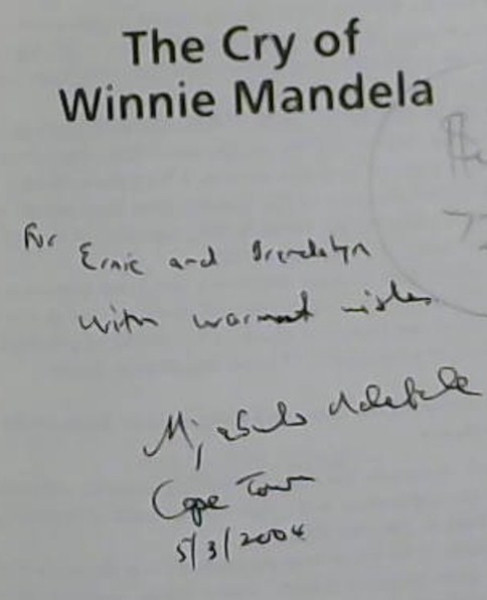 The Cry of
Winnie Mandela
For Ernie and
with warmest wishes
Njabulo Ndebele
Cape Town
5/3/2004